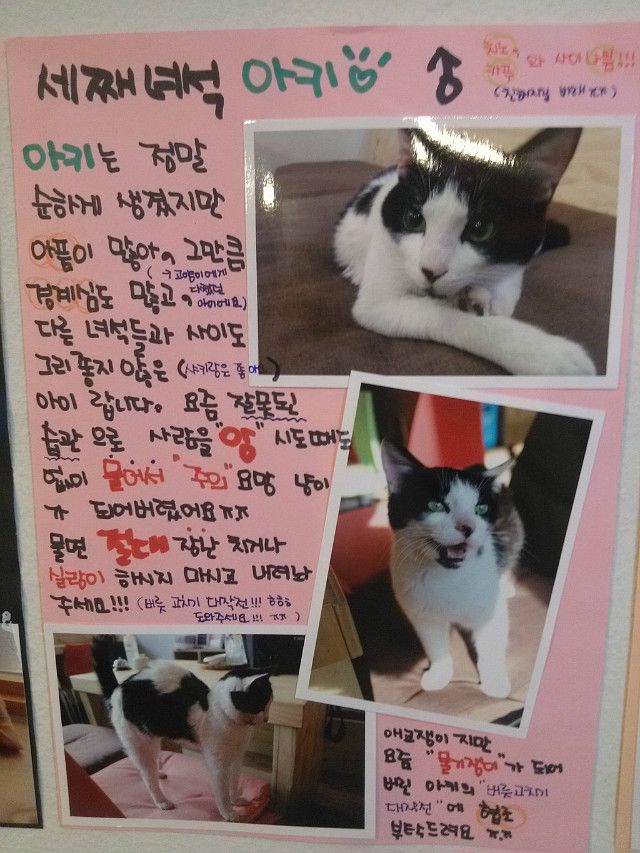 세째녀석 아키
치노 카푸 와 사이나쁨!!!
(친해지길 바래 ㅠㅠ)
아키는 정말
순하게 생겼지만
아픔이 많아, 그만큼
(→고양이에게
다쳤던
아이에요)
경계심도 많고,
다른 녀석들과 사이도
그리 좋지 않은 (샤키랑은 좋아)
아이 랍니다. 요즘 잘못된
습관 으로 사람을 "앙" 시도때도
없이 물어서 "주의" 요망 냥이
가 되어버렸어요 ㅠ.ㅠ
물면 절대 장난 치거나
실랑이 하시지 마시고 내려놔
주세요!!! (버릇 고치기 대작전!!! ㅎㅎㅎ
도와주세요!!! ㅠㅠ)
애교쟁이 지만
요즘 "물기쟁이"가 되어
버린 아키의 "버릇고치기
대작전"에 협조
부탁드려요 ㅠ.ㅠ